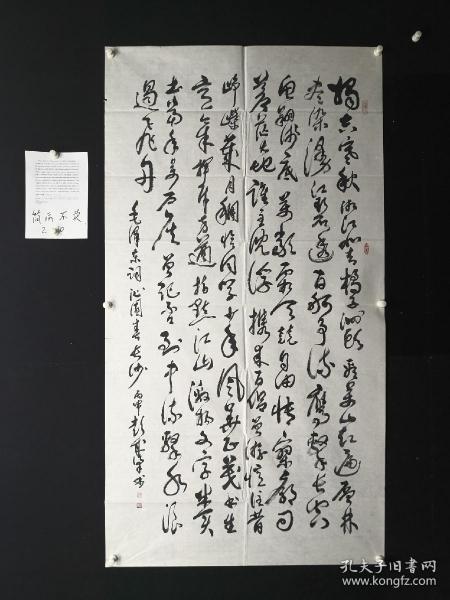 独立寒秋湘江北去橘子洲头看万山红遍层林
尽染漫江碧透百舸争流鹰击长空
鱼翔浅底万类霜天竞自由怅寥廓问
苍茫大地谁主沉浮携来百侣曾游忆往昔
峥嵘岁月稠恰同学少年风华正茂书生
意气挥斥方遒指点江山激扬文字粪
土当年万户侯曾记否到中流击水浪
遏飞舟
毛泽东词沁园春长沙 丙申 彭 书
孔夫子旧书网
www.kongfz.com